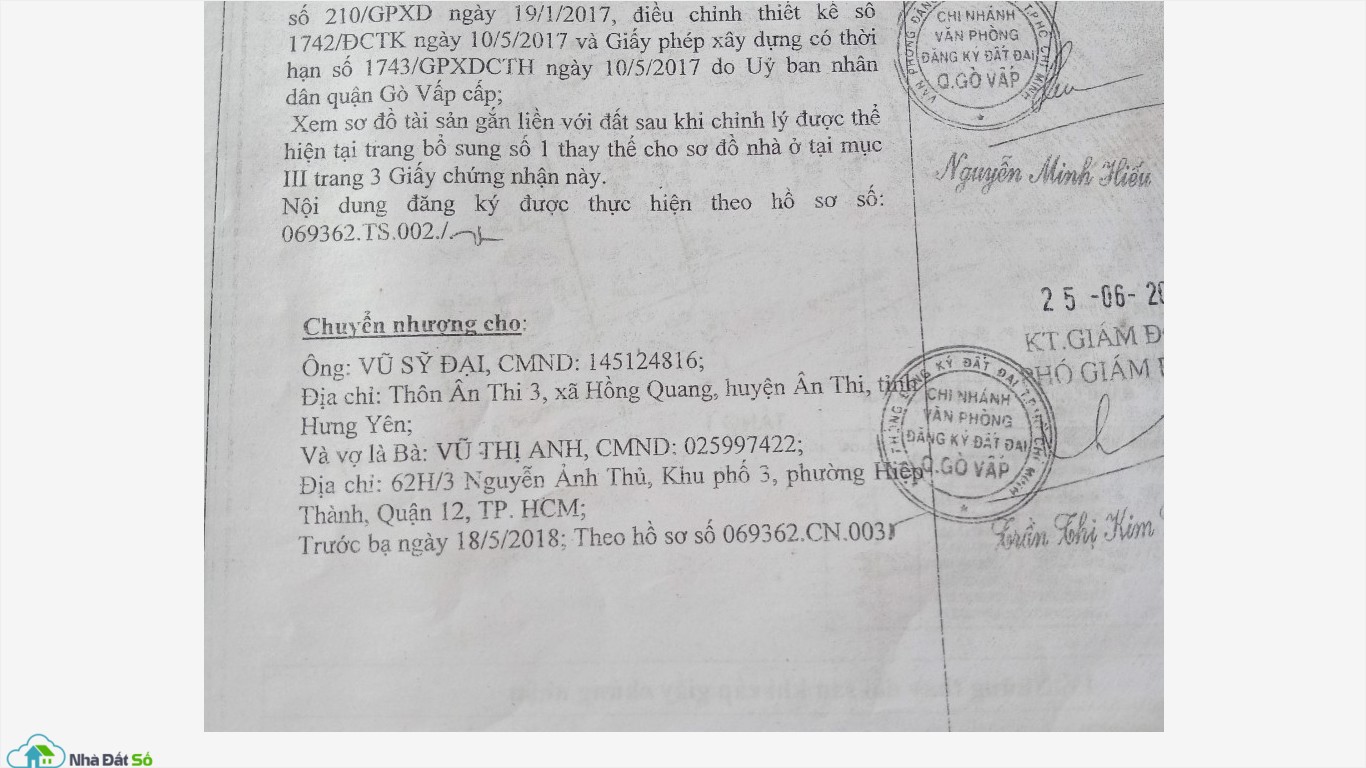 số 210/GPXD ngày 19/1/2017, điều chỉnh thiết kế số
1742/ĐCTK ngày 10/5/2017 và Giấy phép xây dựng có thời
hạn số 1743/GPXDCTH ngày 10/5/2017 do Uỷ ban nhân
dân quận Gò Vấp cấp;
Xem sơ đồ tài sản gắn liền với đất sau khi chỉnh lý được thể
hiện tại trang bổ sung số 1 thay thế cho sơ đồ nhà ở tại mục
III trang 3 Giấy chứng nhận này.
Nội dung đăng ký được thực hiện theo hồ sơ số:
069362.TS.002./.
CHI NHÁNH
VĂN PHÒNG
ĐĂNG KÝ ĐẤT ĐAI
Q.GÒ VẤP
Nguyễn Minh Hiếu
Chuyển nhượng cho:
Ông: VŨ SỸ ĐẠI, CMND: 145124816;
Địa chỉ: Thôn Ân Thi 3, xã Hồng Quang, huyện Ân Thi, tỉnh
Hưng Yên;
Và vợ là Bà: VŨ THỊ ANH, CMND: 025997422;
Địa chỉ: 62H/3 Nguyễn Ảnh Thủ, Khu phố 3, phường Hiệp
Thành, Quận 12, TP. HCM;
Trước bạ ngày 18/5/2018; Theo hồ sơ số 069362.CN.003
25 -06- 20
KT.GIÁM Đ
PHÓ GIÁM
CHI NHÁNH
VĂN PHÒNG
ĐĂNG KÝ ĐẤT ĐAI
Q.GÒ VẤP
Trần Thị Kim
Nhà Đất Số